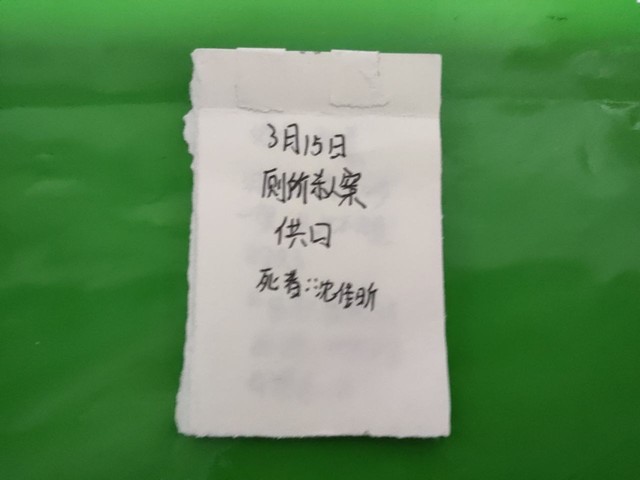 3月15日
厕所杀人案
供口
死者::沈佳昕